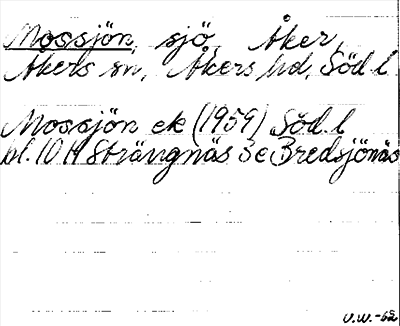 Mossjön, sjö, Åker,
Åkers sn, Åkers hd, Söd. l.
Mossjön ek (1959) Söd. l
bl. 10 H Strängnäs 3 e Bredsjönäs
U.W.-62